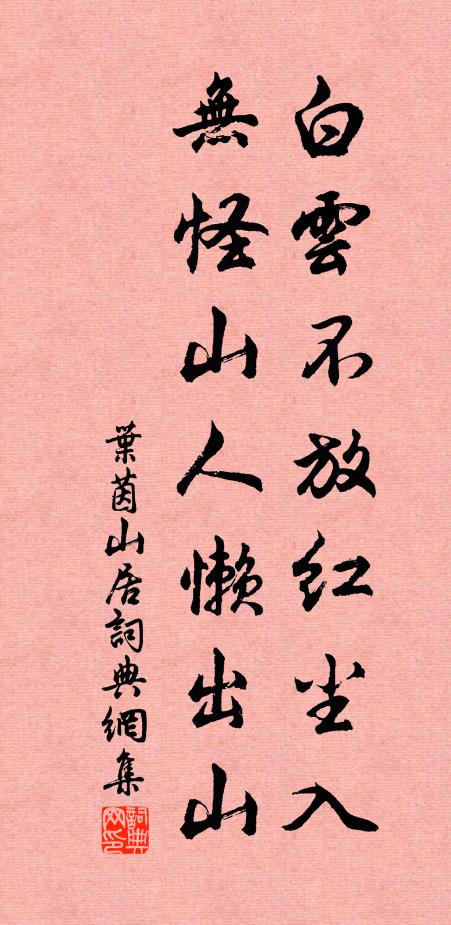 白雲不放红尘入
無怪山人懒出山
葉茵山居詞典網集
詞典
网印